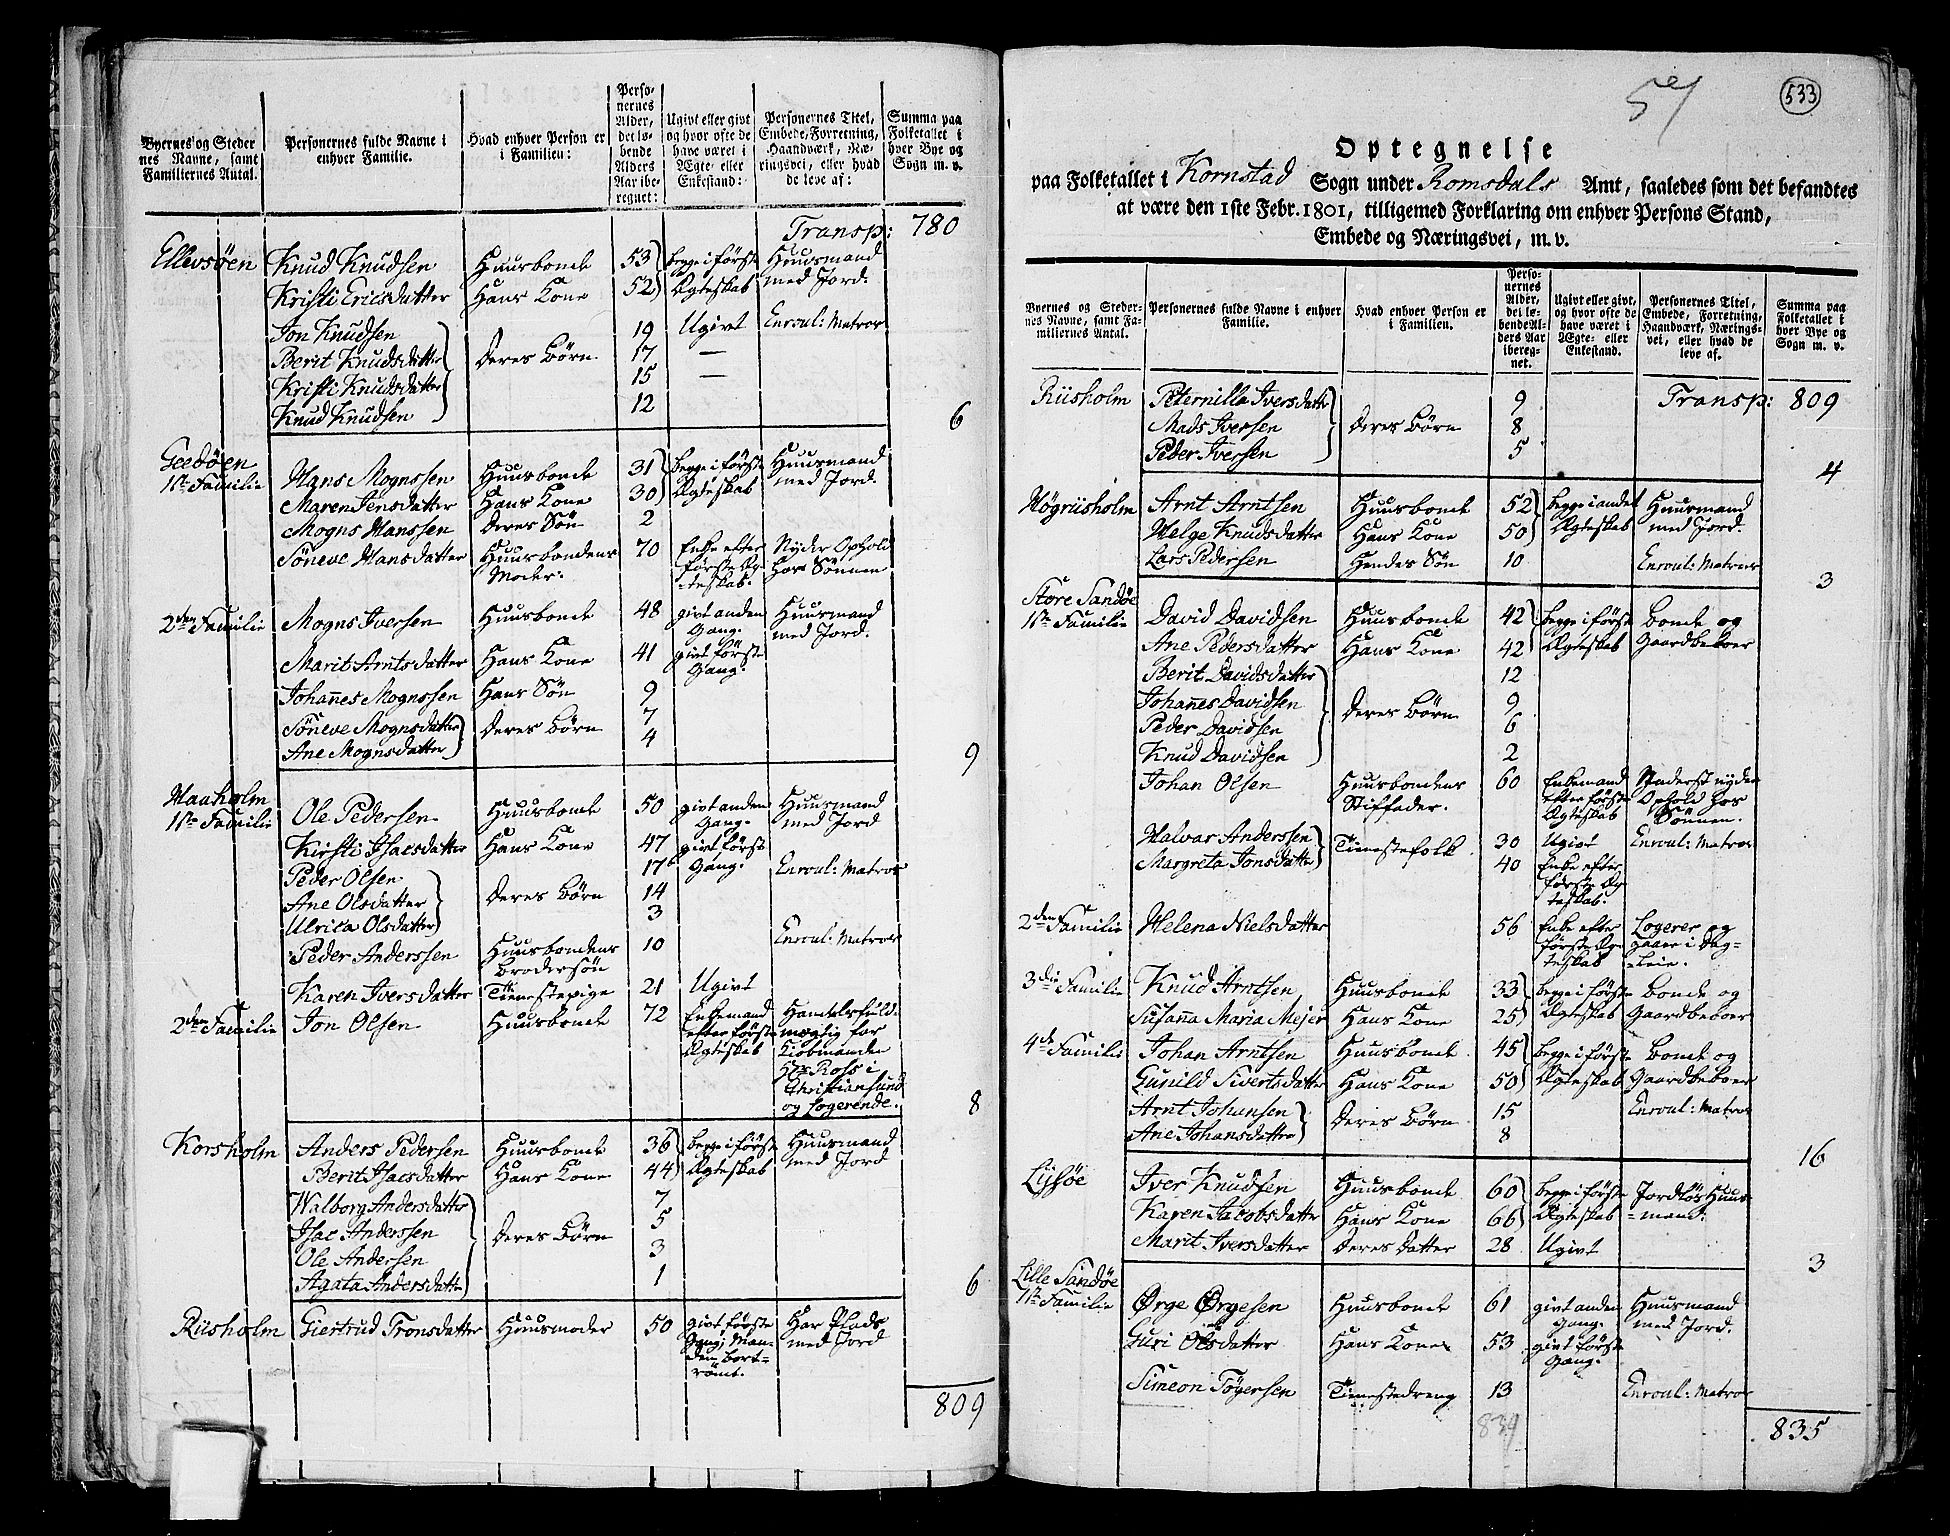 Byernes og Steder
nes Navne, samt
Familiernes Antal.
Personernes fulde Navne i
enhver Familie.
Hvad enhver Person er
i Familien:
Perso-
nernes
Alder,
det lø-
bende
Alders
Aar ibe-
regnet:
Ugivt eller givt
og hvor ofte de
have været i
Ægte- eller
Enkestand:
Personernes Titel,
Embede, Forretning,
Haandværk, Næ-
ringsvei, eller hvad
de leve af:
Summa paa
Folketallet i
hver Bye og
Sogn m. v.
Transp: 780
Ellevsöen Knud Knudsen Huusbonde 53 begge i först Huusmand
Kristi Ericsdatter Hans Kone 52 Ægteskab med Jord.
Jon Knudsen 19 Ugivt Enroul: Matros
Berit Knudsdatter Deres Börn 17 —
Kristi Knudsdatter 15 —
Knud Knudsen 12
6
Geedöen
1ste Familie Hans Mognssen Huusbonde 31 begge i först Huusmand
Maren Jensdatter Hans Kone 30 Ægteskab med Jord.
Mogns Hanssen Deres Sön 2
Söneve Hansdatter Huusbondens 70 Enke efter Nyder Ophold
Moder. förste Æg- hos Sönnen
-teskab.
2den Familie Mogns Iversen Huusbonde 48 givt anden Huusmand
Gang. med Jord.
Marit Arntsdatter Hans Kone 41 givt förste
Gang.
Johanes Mognssen Hans Sön 9
Söneve Mognsdatter Deres Börn 7
Ane Mognsdatter 4
9
Maaholm
1ste Familie Ole Pedersen Huusbonde 50 givt anden Huusmand
Gang. med Jord
Kirsti Isacsdatter Hans Kone 47 givt först
Peder Olsen 17 Gang. Enroul: Matros
Ane Olsdatter Deres Börn 14
Ulrica Olsdatter 3
Peder Anderssen Huusbondens 10 Enroul: Matros
Brodersön
Karen Iversdatter Tienestepige 21 Ugivt
2den Familie Jon Olsen Huusbonde 72 Enkemand Handelsfuld-
efter förste mægtig for
Ægteskab Kiöbmanden
Hr Ross i
Christiansund
og Logerende.
8
Korsholm Anders Pedersen Huusbonde 36 begge i först Huusmand
Berit Isacsdatter Hans Kone 44 Ægteskab med Jord
Walborg Andersdatter 7
Isac Anderssen Deres Börn 5
Ole Andersen 3
Agata Andersdatter 1
6
Riisholm Giertrud Tronsdatter Huusmoder 50 givt förste Har Plads
Gang; Man- med Jord
den bort-
römt.
809
57
533
Optegnelse
paa Folketallet i Kornstad Sogn under Romsdals Amt, saaledes som det befandtes
at være den 1ste Febr. 1801, tilligemed Forklaring om enhver Persons Stand,
Embede og Næringsvei, m. v.
Byernes og Steder-
nes Navne, samt Fa-
miliernes Antal.
Personernes fulde Navne i enhver
Familie.
Hvad enhver Person er
i Familien.
Perso-
nernes
Alder,
det lø-
bende Al-
ders Aar
ibereg-
net.
Ugivt eller givt,
og hvor ofte de
have været i
Ægte- eller
Enkestand.
Personernes Titel,
Embede, Forretning,
Haandværk, Nærings-
vei, eller hvad de
leve af.
Summa paa
Folketallet i
hver Bye og
Sogn m. v.
Riisholm Peternilla Iversdatter 9 Transp: 809
Mads Iversen Deres Börn 8
Peder Iversen 5
4
Högriisholm Arnt Arntsen Huusbonde 52 begge i andet Huusmand
Helge Knudsdatter Hans Kone 50 Ægteskab med Jord.
Lars Pedersen Hendes Sön 10 Enroul: Matros
3
Store Sandöe
1ste Familie David Davidsen Huusbonde 42 begge i först Bonde og
Ane Pedersdatter Hans Kone 42 Ægteskab Gaardbeboer
Berit Davidsdatter 12
Johanes Davidsen Deres Börn 9
Peder Davidsen 6
Knud Davidsen 2
Johan Olsen Huusbondens 60 Enkemand nyder
Stiffader. efter förste Ophold hos
Ægteskab Sönnen.
Halvar Anderssen Tienestefolk 30 Ugivt Enroul: Matros
Margreta Jonsdatter 40 Enke efter
förste Æg-
teskab.
2den Familie Helena Nielsdatter 56 Enke efter Logerer og
förste Æg- gaaer i Dag-
teskab -leie.
3die Familie Knud Arntsen Huusbonde 33 begge i förste Bonde og
Susana Maria Mejer Hans Kone 25 Ægteskab Gaardbeboer
4de Familie Johan Arntsen Huusbonde 45 begge i förste Bonde og
Gunild Sivertsdatter Hans Kone 50 Ægteskab Gaardbeboer
Arnt Johansen Deres Börn 15 Enroul: Matros
Ane Johansdatter 8
16
Lysöe Iver Knudsen Huusbonde 60 begge i förste Jordlös Huus-
Karen Jacobsdatter Hans Kone 66 Ægteskab -mand.
Marit Iversdatter Deres Datter 28 Ugivt
3
Lille Sandöe
1ste Familie Ørge Ørgesen Huusbonde 61 givt anden Huusmand
Gang. med Jord.
Guri Olsdatter Hans Kone 53 givt förste
Gang.
Simeon Tögersen Tienestedreng 13 Enroul: Matros
834
835